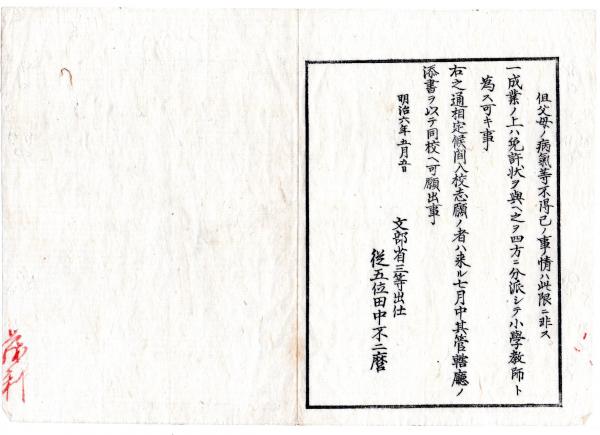 但父母ノ病氣等不得已ノ事情ハ此限ニ非ス
一成業ノ上ハ免許状ヲ與ヘ之ヲ四方ニ分派シテ小學教師ト
為ス可キ事
右之通相定候間入校志願ノ者ハ来ル七月中其管轄廳ノ
添書ヲ以テ同校ヘ可願出事
明治六年五月
文部省三等出仕
從五位田中不二麿